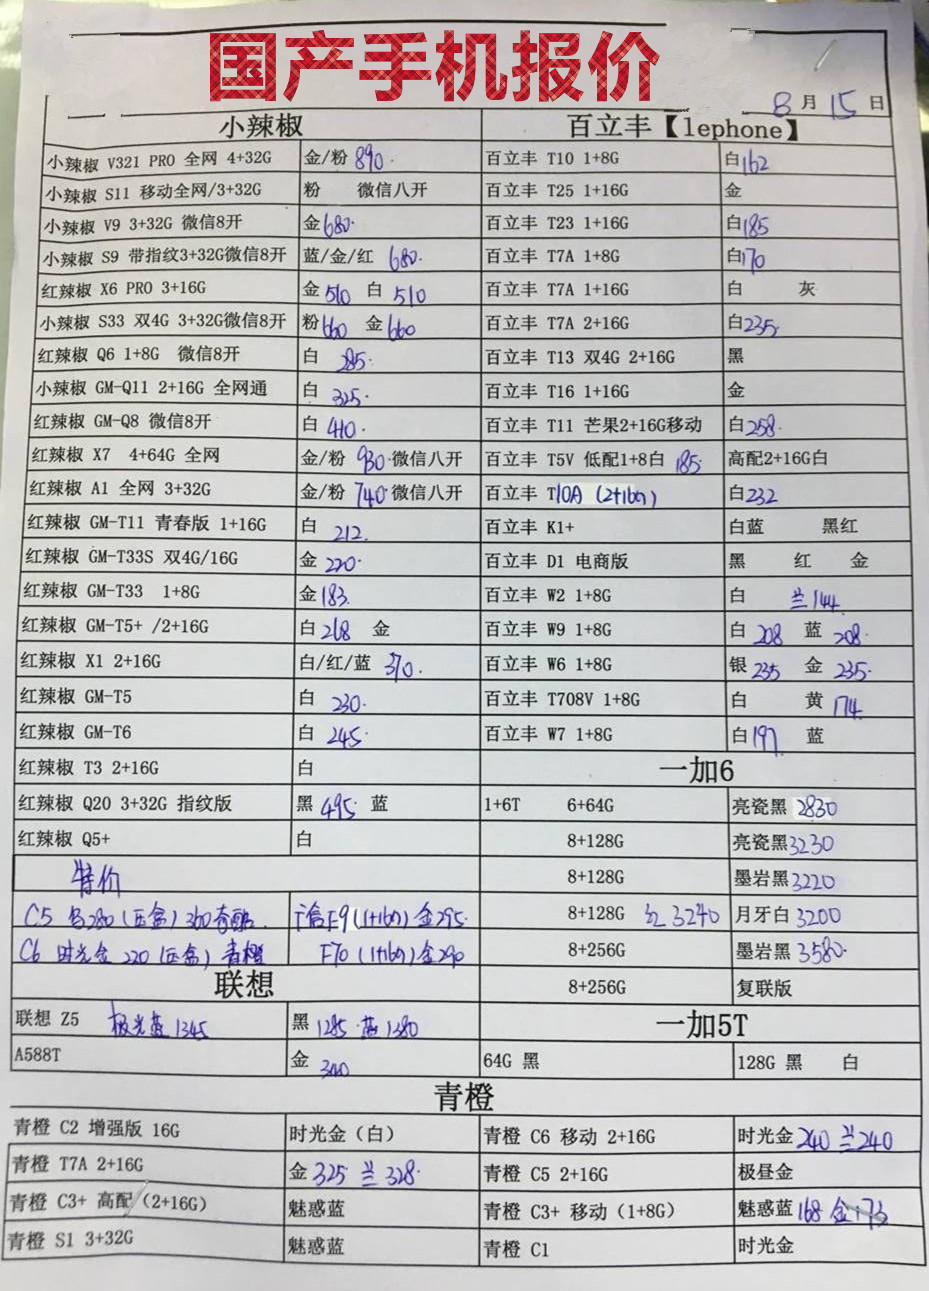 国产手机报价
8月15日
小辣椒 百立丰【lephone】
小辣椒 V321 PRO 全网 4+32G 金/粉 890 百立丰 T10 1+8G 白162
小辣椒 S11 移动全网/3+32G 粉 微信八开 百立丰 T25 1+16G 金
小辣椒 V9 3+32G 微信8开 金680 百立丰 T23 1+16G 白185
小辣椒 S9 带指纹3+32G微信8开 蓝/金/红 680 百立丰 T7A 1+8G 白170
红辣椒 X6 PRO 3+16G 金 510 白 510 百立丰 T7A 1+16G 白 灰
小辣椒 S33 双4G 3+32G微信8开 粉660 金660 百立丰 T7A 2+16G 白235
红辣椒 Q6 1+8G 微信8开 白 285 百立丰 T13 双4G 2+16G 黑
小辣椒 GM-Q11 2+16G 全网通 白 325 百立丰 T16 1+16G 金
红辣椒 GM-Q8 微信8开 白 410 百立丰 T11 芒果2+16G移动 白258
红辣椒 X7 4+64G 全网 金/粉 930 微信八开 百立丰 T5V 低配1+8白 185 高配2+16G白
红辣椒 A1 全网 3+32G 金/粉 740 微信八开 百立丰 T10A (2+16G) 白232
红辣椒 GM-T11 青春版 1+16G 白 212 百立丰 K1+ 白蓝 黑红
红辣椒 GM-T33S 双4G/16G 金 220 百立丰 D1 电商版 黑 红 金
红辣椒 GM-T33 1+8G 金183 百立丰 W2 1+8G 白 兰144
红辣椒 GM-T5+ /2+16G 白268 金 百立丰 W9 1+8G 白 208 蓝 208
红辣椒 X1 2+16G 白/红/蓝 370 百立丰 W6 1+8G 银 235 金 235
红辣椒 GM-T5 白 230 百立丰 T708V 1+8G 白 黄 174
红辣椒 GM-T6 白 245 百立丰 W7 1+8G 白197 蓝
红辣椒 T3 2+16G 白 一加6
红辣椒 Q20 3+32G 指纹版 黑 495 蓝 1+6T 6+64G 亮瓷黑 2830
红辣椒 Q5+ 白 8+128G 亮瓷黑3230
特价 8+128G 墨岩黑3220
C5 280 (压盒) F9 (1+16G) 金295 8+128G 红 3240 月牙白 3200
C6 时光金 220 (压盒) 青橙 F70 (1+16G) 金290 8+256G 墨岩黑 3580
联想 8+256G 复联版
联想 Z5 极光蓝 1345 黑 1285 蓝 1280 一加5T
A588T 金 340 64G 黑 128G 黑 白
青橙
青橙 C2 增强版 16G 时光金(白) 青橙 C6 移动 2+16G 时光金 240 兰240
青橙 T7A 2+16G 金 325 兰 328 青橙 C5 2+16G 极昼金
青橙 C3+ 高配(2+16G) 魅惑蓝 青橙 C3+ 移动(1+8G) 魅惑蓝 168 金173
青橙 S1 3+32G 魅惑蓝 青橙 C1 时光金